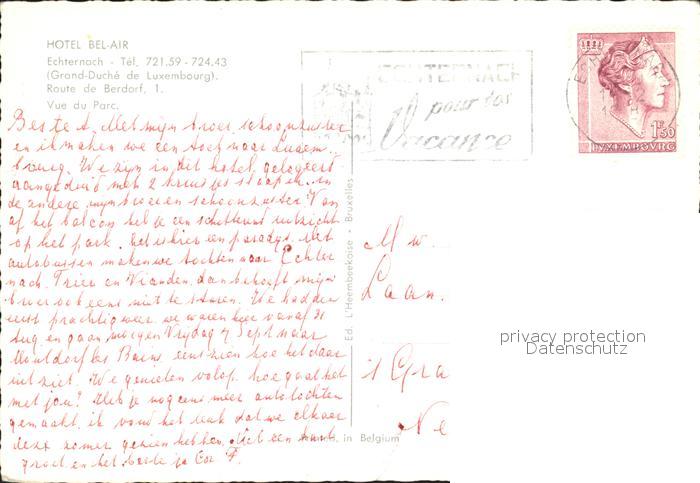 HOTEL BEL-AIR
Echternach - Tél. 721.59 - 724.43
(Grand-Duché de Luxembourg).
Route de Berdorf, 1.
Vue du Parc.
ECHTERNACH
pour vos
Vacances
1F50
LUXEMBOURG
Beste A. Met mijn broer, schoonzuster
en ik maken we een door naar Luxem-
burg. We zijn in dit hotel, gelogeerd
aangeduid met 2 kruisjes slaap en in
de andere mijn broer en schoonzuster. Van
af het balcon heb je een schitterend uitzicht
op het park. Het is hier een paradijs. Met
autobussen maken we tochten naar Echter
nach, Trier en Vianden, dan behoeft mijn
broer ook eens niet te sturen. We hadden
eerst prachtig weer we waren hier vanaf 31
Aug en gaan morgen Vrijdag 7 Sept naar
Mondorf les Bains eens zien hoe het daar
uitziet. We genieten volop, hoe gaat het
met jou? Heb je nog eens meer autotochten
gemaakt, ik vond het leuk dat we elkaar
deze zomer gezien hebben. Met een hart.
groet en het beste je Cor F.
Ed. L'Heembeekoise - Bruxelles
in Belgium
Mw.
Laan.
's Gra
Ne
privacy protection
Datenschutz